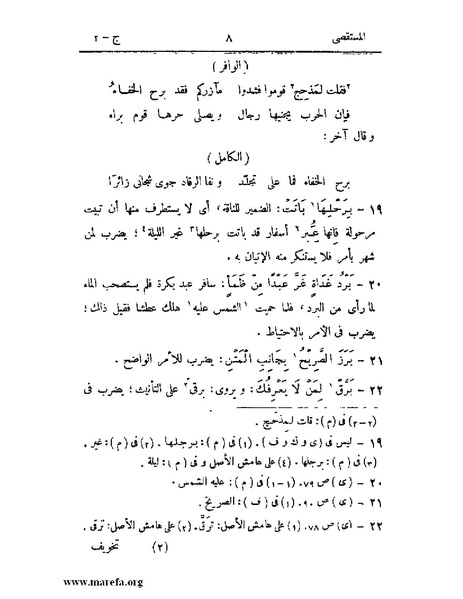 المستقصى ٨ ج – ٢
(الوافر)
٢فقلت لمذحج٢ قوموا فشدوا مآزركم فقد برح الخفاء
فإن الحرب يجنيها رجال ويصلى حرها قوم براء
وقال آخر :
(الكامل)
برح الخفاء فما على تجلد ونفا الرقاد جوى شجانى زائرا
١٩ – بِرَحْلِهَا١ بَاتَتْ: الضمير للناقة، أى لا يستطرف منها أن تبيت
مرحولة فإنها عُبْر٢ أسفار قد باتت برحلها٣ غير الليلة٤؛ يضرب لمن
شهر بأمر فلا يستنكر منه الإتيان به .
٢٠ – بَرْدُ غَدَاةٍ غَرَّ عَبْدًا مِنْ ظَمَأٍ: سافر عبد بكرة فلم يستصحب الماء
لما رأى من البرد، فلما حميت ١الشمس عليه١ هلك عطشا فقيل ذلك؛
يضرب فى الأمر بالاحتياط .
٢١ – بَرَزَ الصَّرِيْحُ١ بِجَانِبِ الْمَتْنِ: يضرب للأمر الواضح .
٢٢ – بَرِّقْ١ لِمَنْ لَا يَعْرِفُكَ: ويروى: برقى٢ على التأنيث؛ يضرب فى
(٢–٢) فى (م): قات لمِذحَجٍ .
١٩ – ليس فى (ى و ك و ف) . (١) فى (م): برجلها . (٢) فى (م): غير .
(٣) فى (م): برجلها . (٤) على هامش الأصل و فى (م): ليلة .
٢٠ – (ى) ص ٧٩. (١–١) فى (م): عليه الشمس .
٢١ – (ى) ص ٩٠. (١) فى (ف): الصريخ .
٢٢ – (ى) ص ٧٨. (١) على هامش الأصل: تَرَقَّ. (٢) على هامش الأصل: ترقى .
(٢) تخويف
www.marefa.org